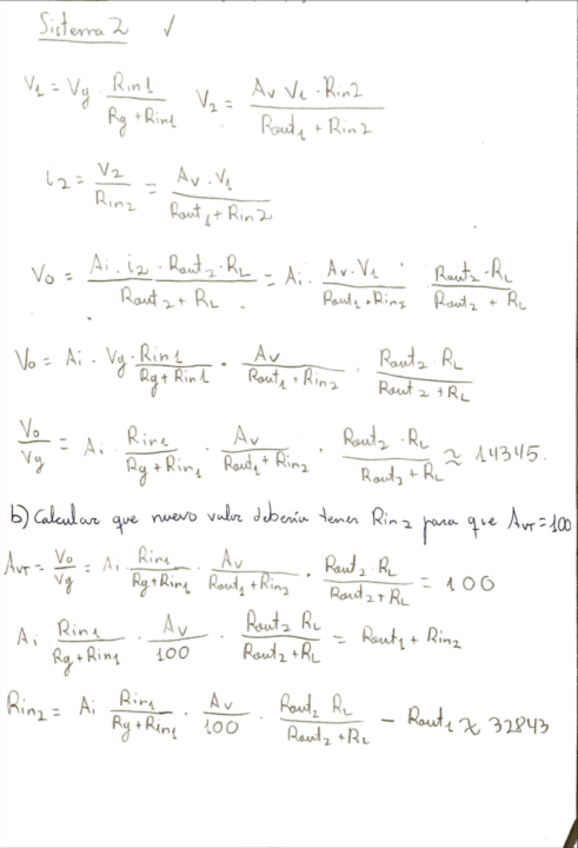 Sistema 2 ✓
V₁ = Vg · Rin1 / (Rg + Rin1)   V₂ = Av V₁ · Rin2 / (Rout₁ + Rin2)
i₂ = V₂ / Rin₂ = Av · V₁ / (Rout₁ + Rin2)
Vo = Ai · i₂ · Rout₂ · RL / (Rout₂ + RL) = Ai · Av · V₁ / (Rout₁ + Rin₂) · Rout₂ · RL / (Rout₂ + RL)
Vo = Ai · Vg · Rin1 / (Rg + Rin1) · Av / (Rout₁ + Rin₂) · Rout₂ · RL / (Rout2 + RL)
Vo / Vg = Ai · Rin₁ / (Rg + Rin₁) · Av / (Rout₁ + Rin₂) · Rout₂ · RL / (Rout₂ + RL) ≈ 14345.
b) Calcular que nuevo valor debería tener Rin2 para que AvT = 100
AvT = Vo / Vg = Ai · Rin₁ / (Rg + Rin₁) · Av / (Rout₁ + Rin₂) · Rout₂ · RL / (Rout₂ + RL) = 100
Ai Rin₁ / (Rg + Rin₁) · Av / 100 · Rout₂ RL / (Rout₂ + RL) = Rout₁ + Rin₂
Rin₂ = Ai Rin₁ / (Rg + Rin₁) · Av / 100 · Rout₂ RL / (Rout₂ + RL) − Rout₁ ≈ 32843